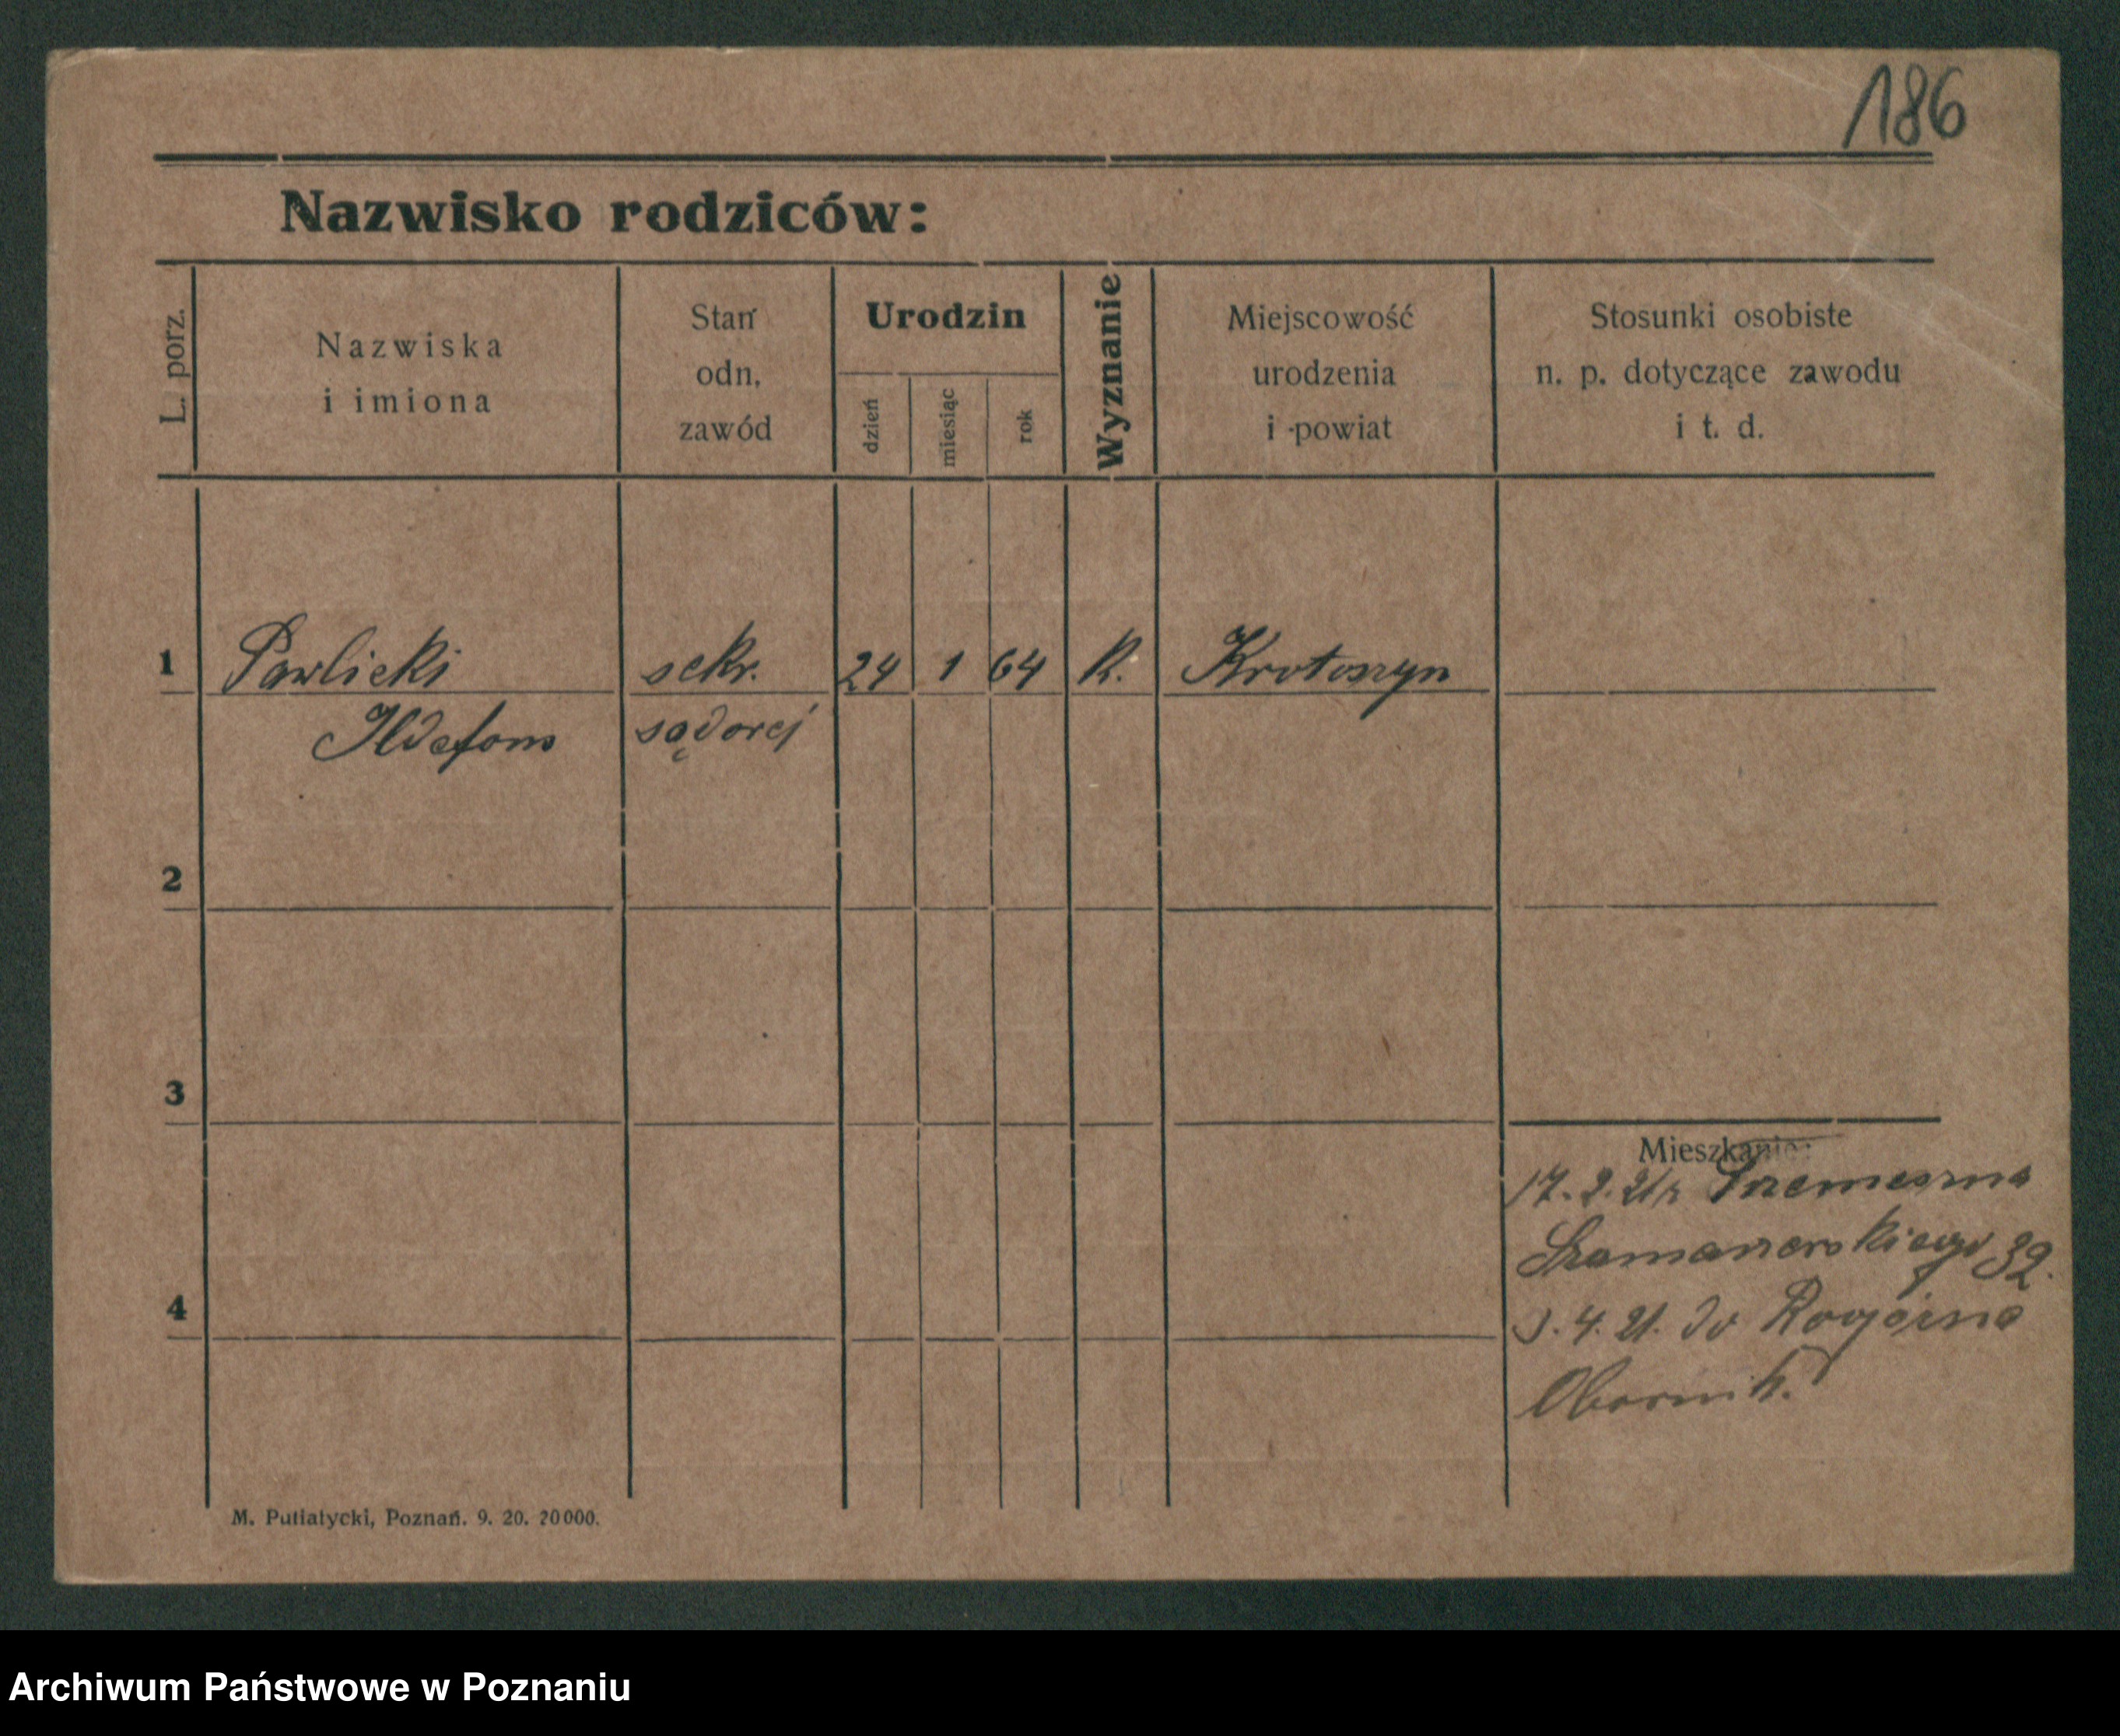 186
Nazwisko rodziców:
L. porz.
Nazwiska
i imiona
Stan
odn.
zawód
Urodzin
dzień
miesiąc
rok
Wyznanie
Miejscowość
urodzenia
i powiat
Stosunki osobiste
n. p. dotyczące zawodu
i t. d.
1 Pawlicki sekr. 24 1 64 R. Krotoszyn
Ildefons sądowej
2
3
Mieszkanie:
17. 2. 21
32.
4
4. 21. do Rogoźna
Obornik.
M. Putiatycki, Poznań. 9. 20. 20000.
Archiwum Państwowe w Poznaniu